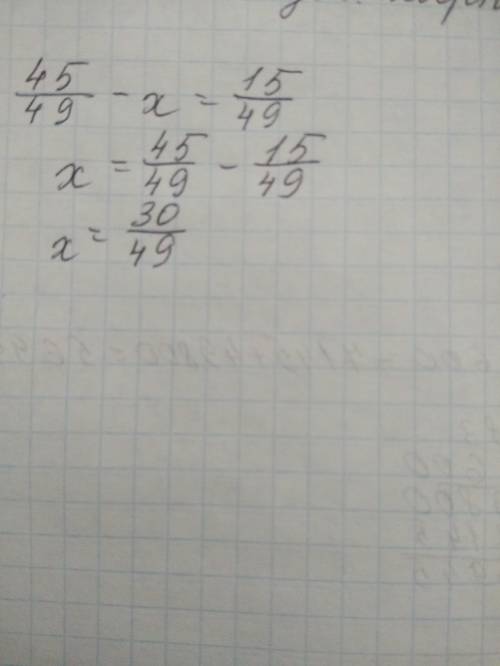 45/49 - x = 15/49
x = 45/49 - 15/49
x = 30/49